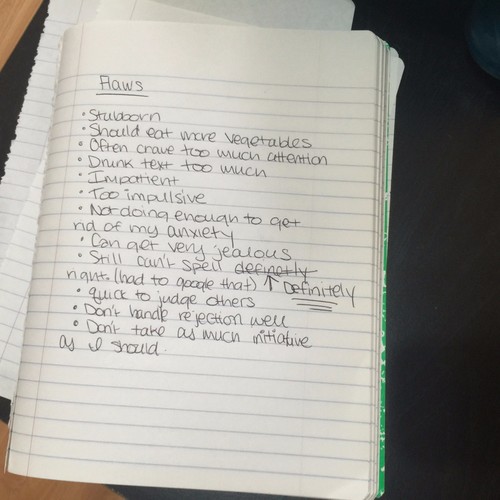 Flaws
• Stubborn
• Should eat more vegetables
• Often crave too much attention
• Drunk text too much
• Impatient
• Too impulsive
• Not doing enough to get
rid of my anxiety
• Can get very jealous
• Still can't spell definetly
right (had to google that) ↑ Definitely
• quick to judge others
• Don't handle rejection well
• Don't take as much initiative
as I should.